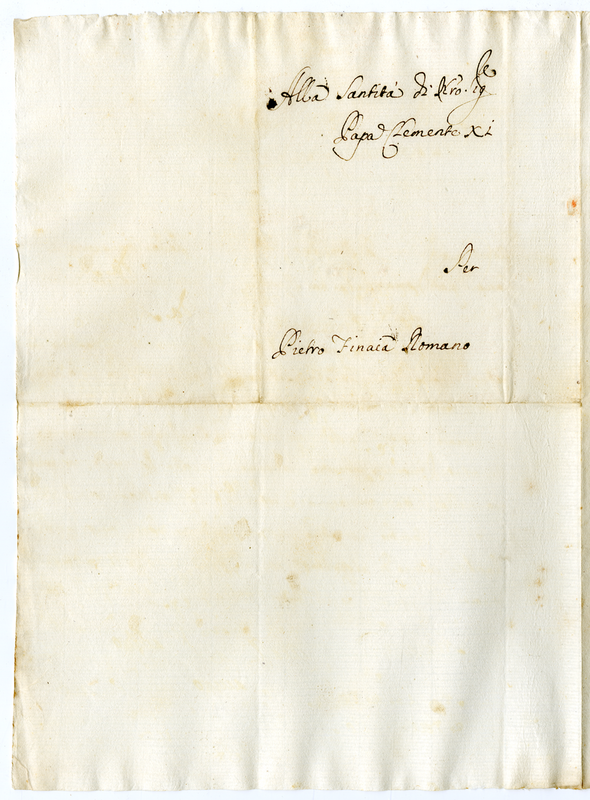 Alla Santità di Nro. Sig.re
Papa Clemente XI
Per
Pietro Finacà Romano